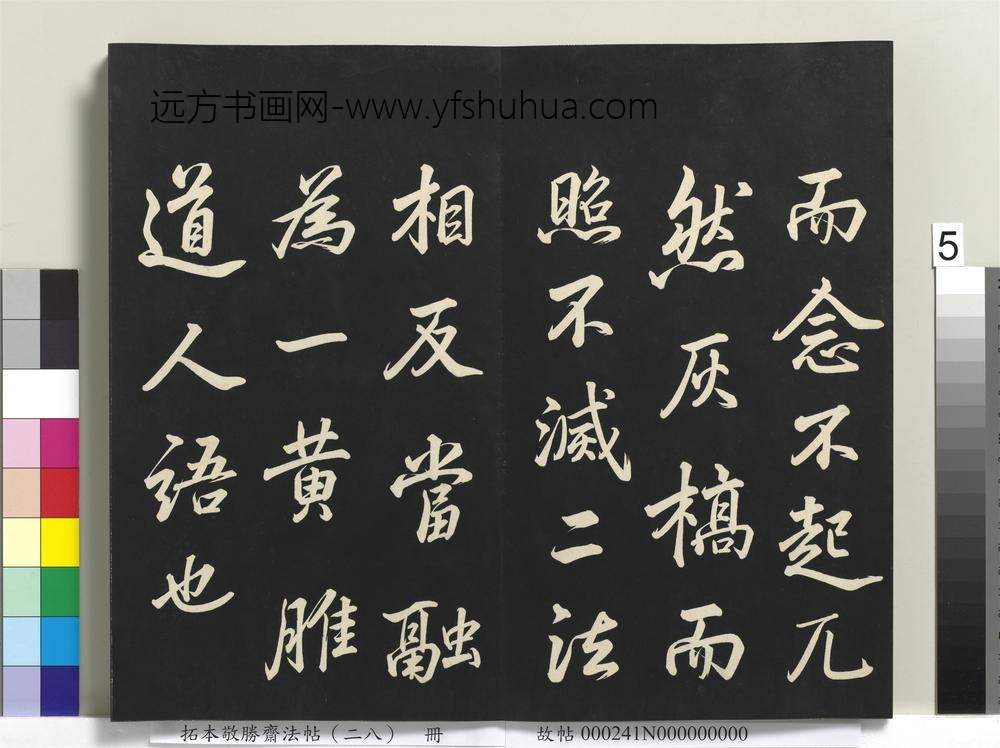 远方书画网-www.yfshuhua.com
而念不起兀
然灰槁而
照不滅二法
相反當融
為一黄脽
道人語也
5
拓本敬勝齋法帖（二八） 冊
故帖 000241N000000000